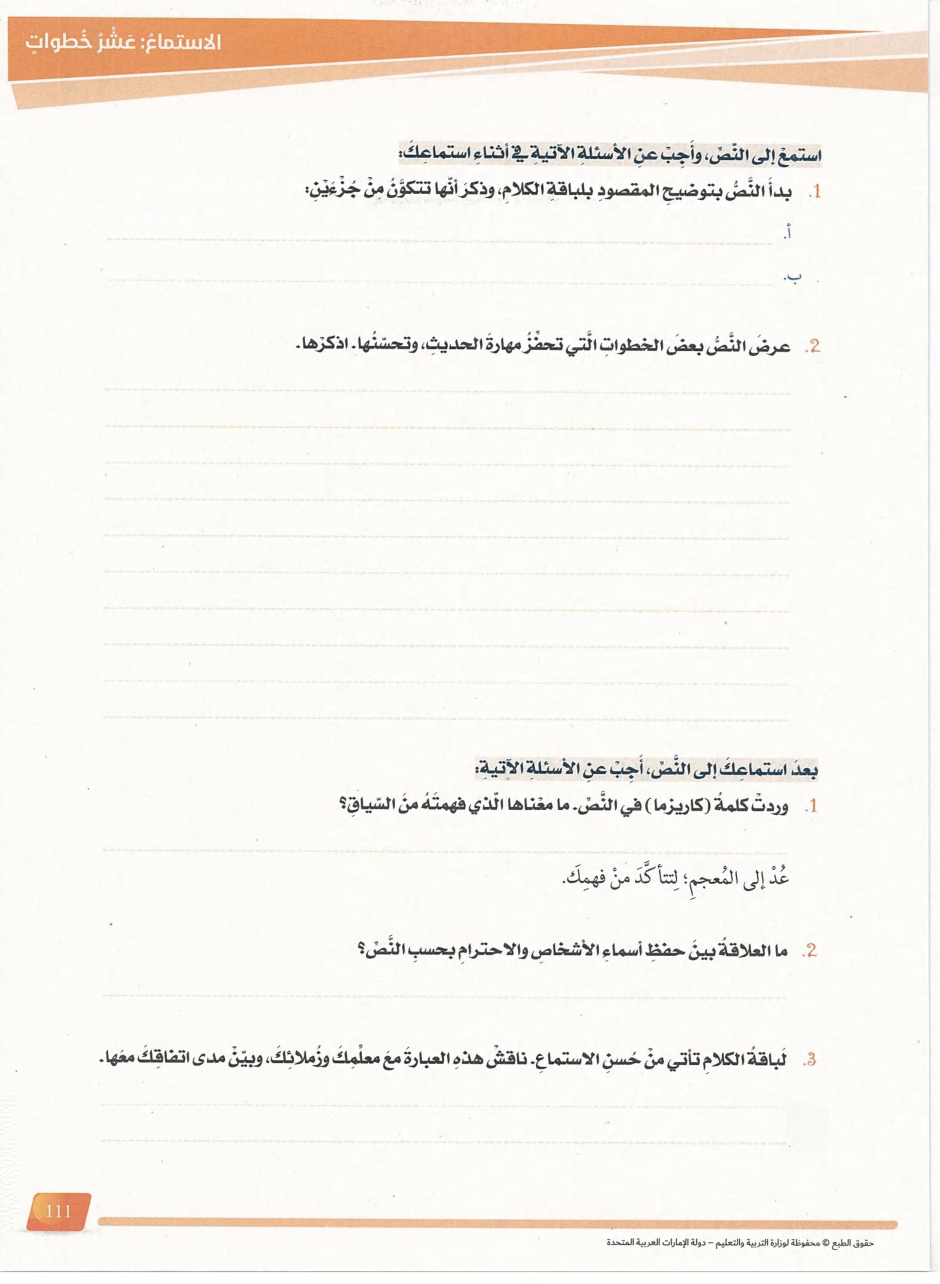 الاستماعُ: عَشْرُ خُطواتٍ
استمعْ إلى النّصِّ، وأَجِبْ عنِ الأسئلةِ الآتيةِ في أثناءِ استماعِكَ:
1. بدأَ النَّصُّ بتوضيحِ المقصودِ بلباقةِ الكلامِ، وذكرَ أنّها تتكوَّنُ مِنْ جُزْءَيْنِ:
أ.
ب.
2. عرضَ النَّصُّ بعضَ الخطواتِ الَّتي تحفِّزُ مهارةَ الحديثِ، وتحسّنُها. اذكرْها.
بعدَ استماعِكَ إلى النَّصِّ، أَجِبْ عنِ الأسئلةِ الآتيةِ:
1. وردتْ كلمةُ (كاريزما) في النَّصِّ. ما معْناها الّذي فهمتَهُ منَ السّياقِ؟
عُدْ إلى المُعجمِ؛ لِتتأكَّدَ منْ فهمِكَ.
2. ما العلاقةُ بينَ حفظِ أسماءِ الأشخاصِ والاحترامِ بحسبِ النَّصِّ؟
3. لَباقةُ الكلامِ تأتي منْ حُسنِ الاستماعِ. ناقشْ هذهِ العبارةَ معَ معلِّمِكَ وزُملائِكَ، وبيّنْ مدى اتفاقِكَ معَها.
111
حقوق الطبع © محفوظة لوزارة التربية والتعليم – دولة الإمارات العربية المتحدة